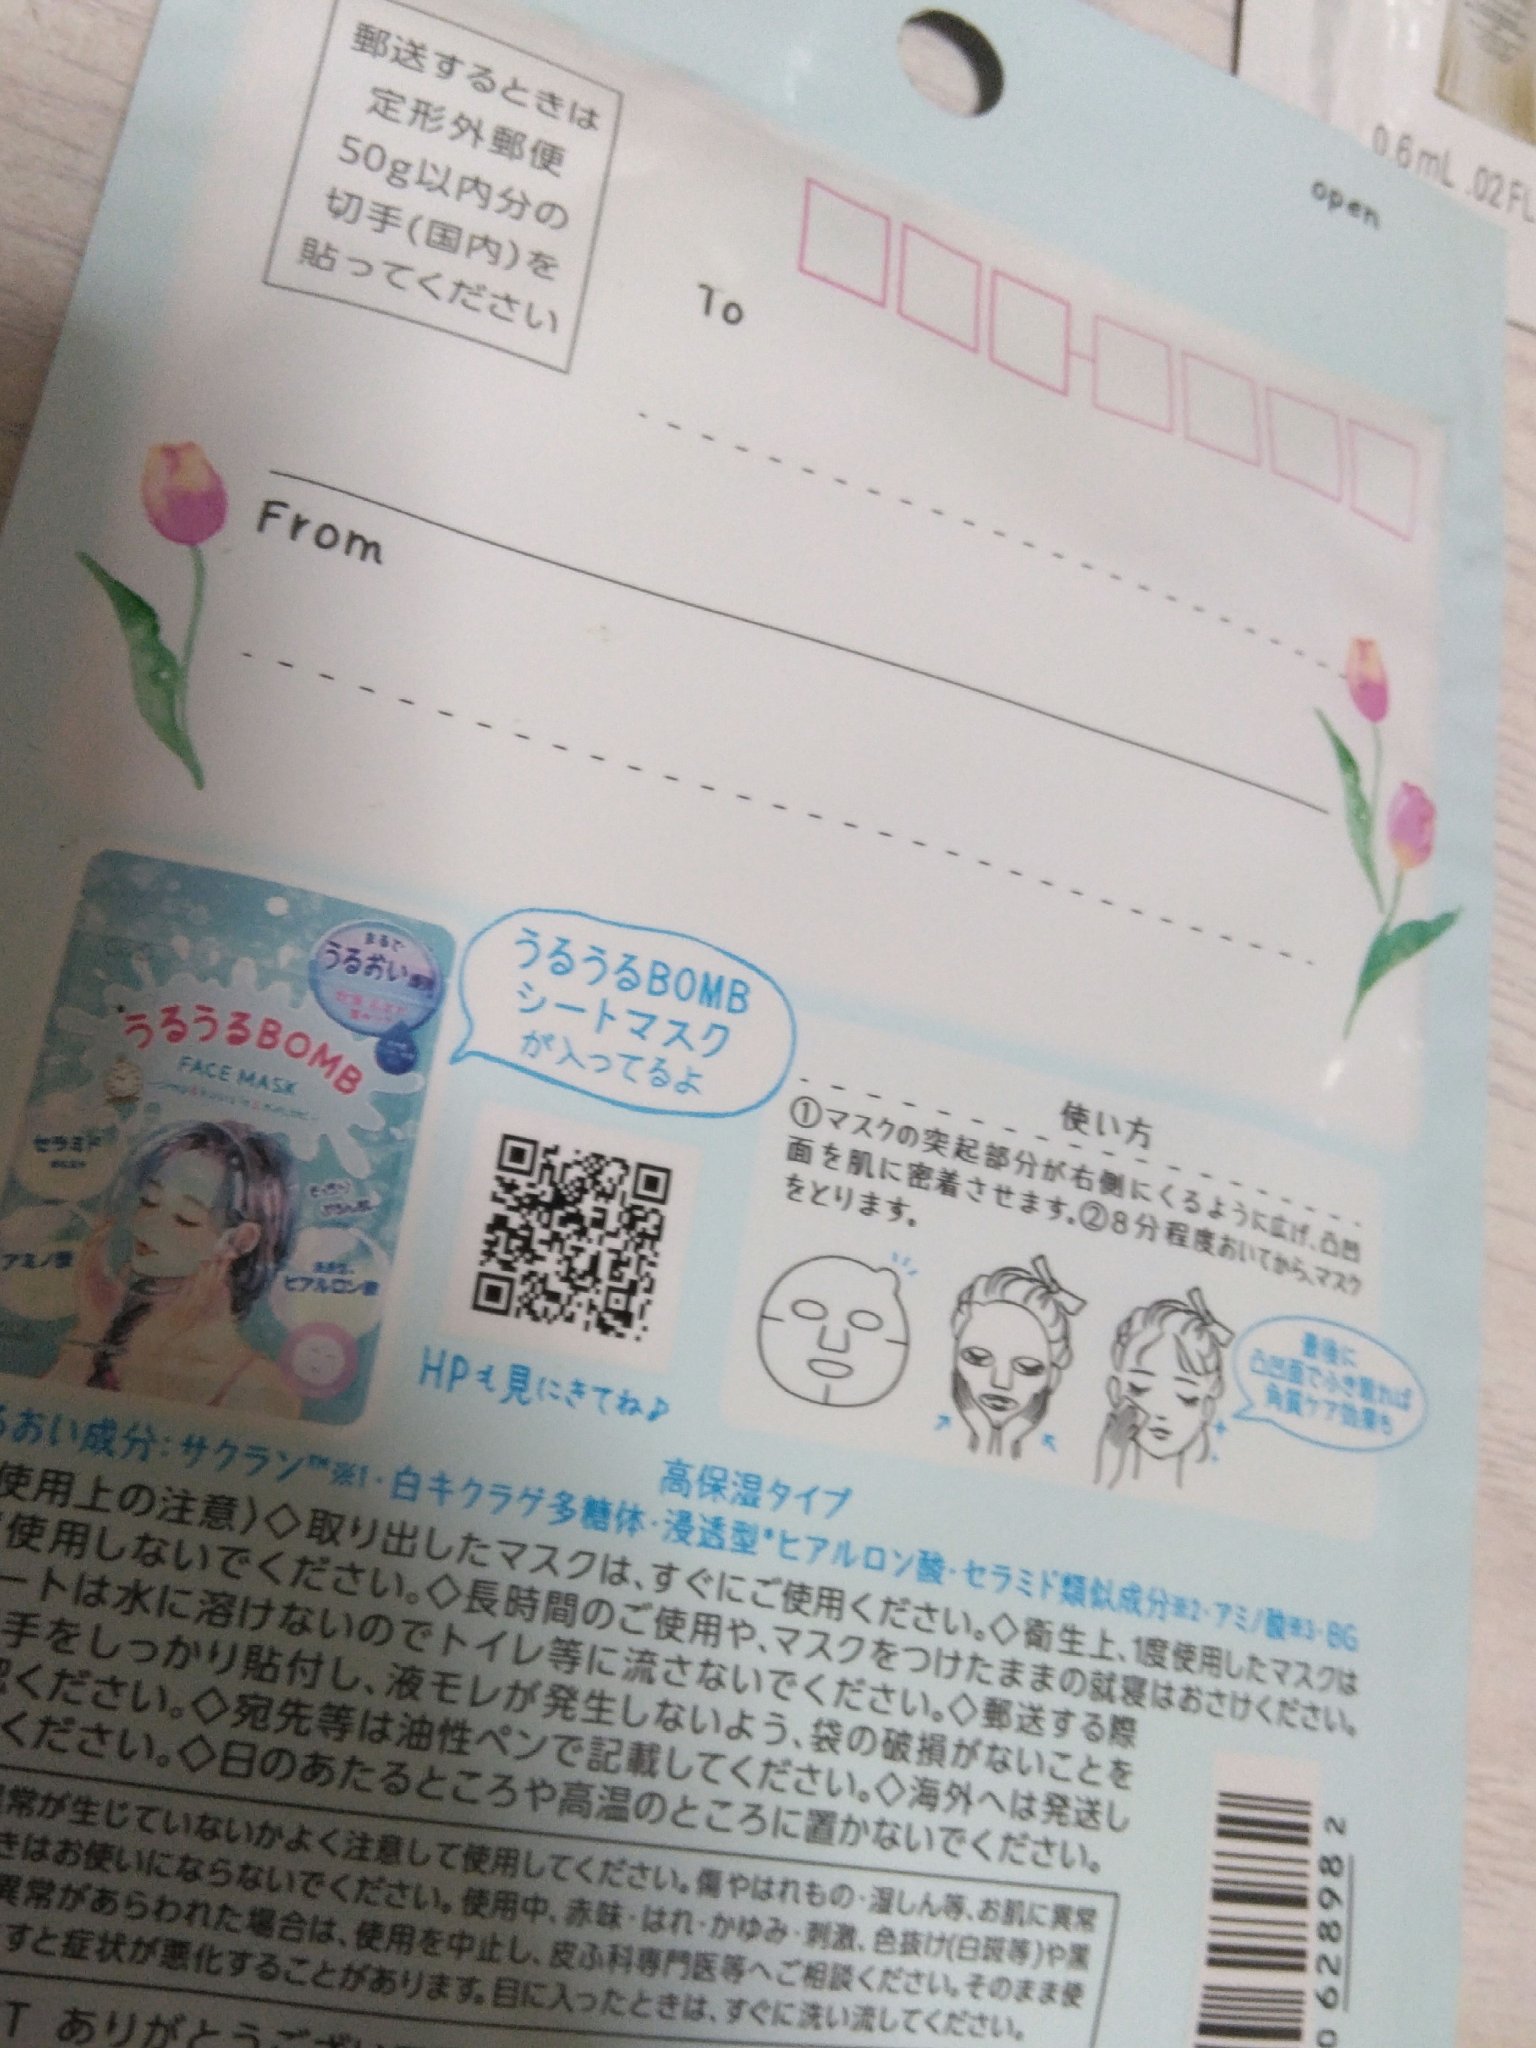 郵送するときは
定形外郵便
50g以内分の
切手(国内)を
貼ってください
open
0.6mL .02FL
To
From
まるで
うるおい
うるうるBOMB
FACE MASK
セラミド
アミノ酸
ヒアルロン酸
うるうるBOMB
シートマスク
が入ってるよ
HPも見にきてね♪
使い方
①マスクの突起部分が右側にくるように広げ、凸凹
面を肌に密着させます。②8分程度おいてから、マスク
をとります。
最後に
凸凹面で小さ
角質ケア効果も
高保湿タイプ
るおい成分：サクラン™※1・白キクラゲ多糖体・浸透型*ヒアルロン酸・セラミド類似成分※2・アミノ酸※3・BG
使用上の注意〉◇取り出したマスクは、すぐにご使用ください。◇衛生上、1度使用したマスクは
使用しないでください。◇長時間のご使用や、マスクをつけたままの就寝はおさけください。
ートは水に溶けないのでトイレ等に流さないでください。◇郵送する際
手をしっかり貼付し、液モレが発生しないよう、袋の破損がないことを
ください。◇宛先等は油性ペンで記載してください。◇海外へは発送し
ください。◇日のあたるところや高温のところに置かないでください。
常が生じていないかよく注意して使用してください。傷やはれもの・湿しん等、お肌に異常
きはお使いにならないでください。使用中、赤味・はれ・かゆみ・刺激、色抜け(白斑等)や黒
異常があらわれた場合は、使用を中止し、皮ふ科専門医等へご相談ください。そのまま使
すと症状が悪化することがあります。目に入ったときは、すぐに洗い流してください。
T ありがとうござい
0 628982